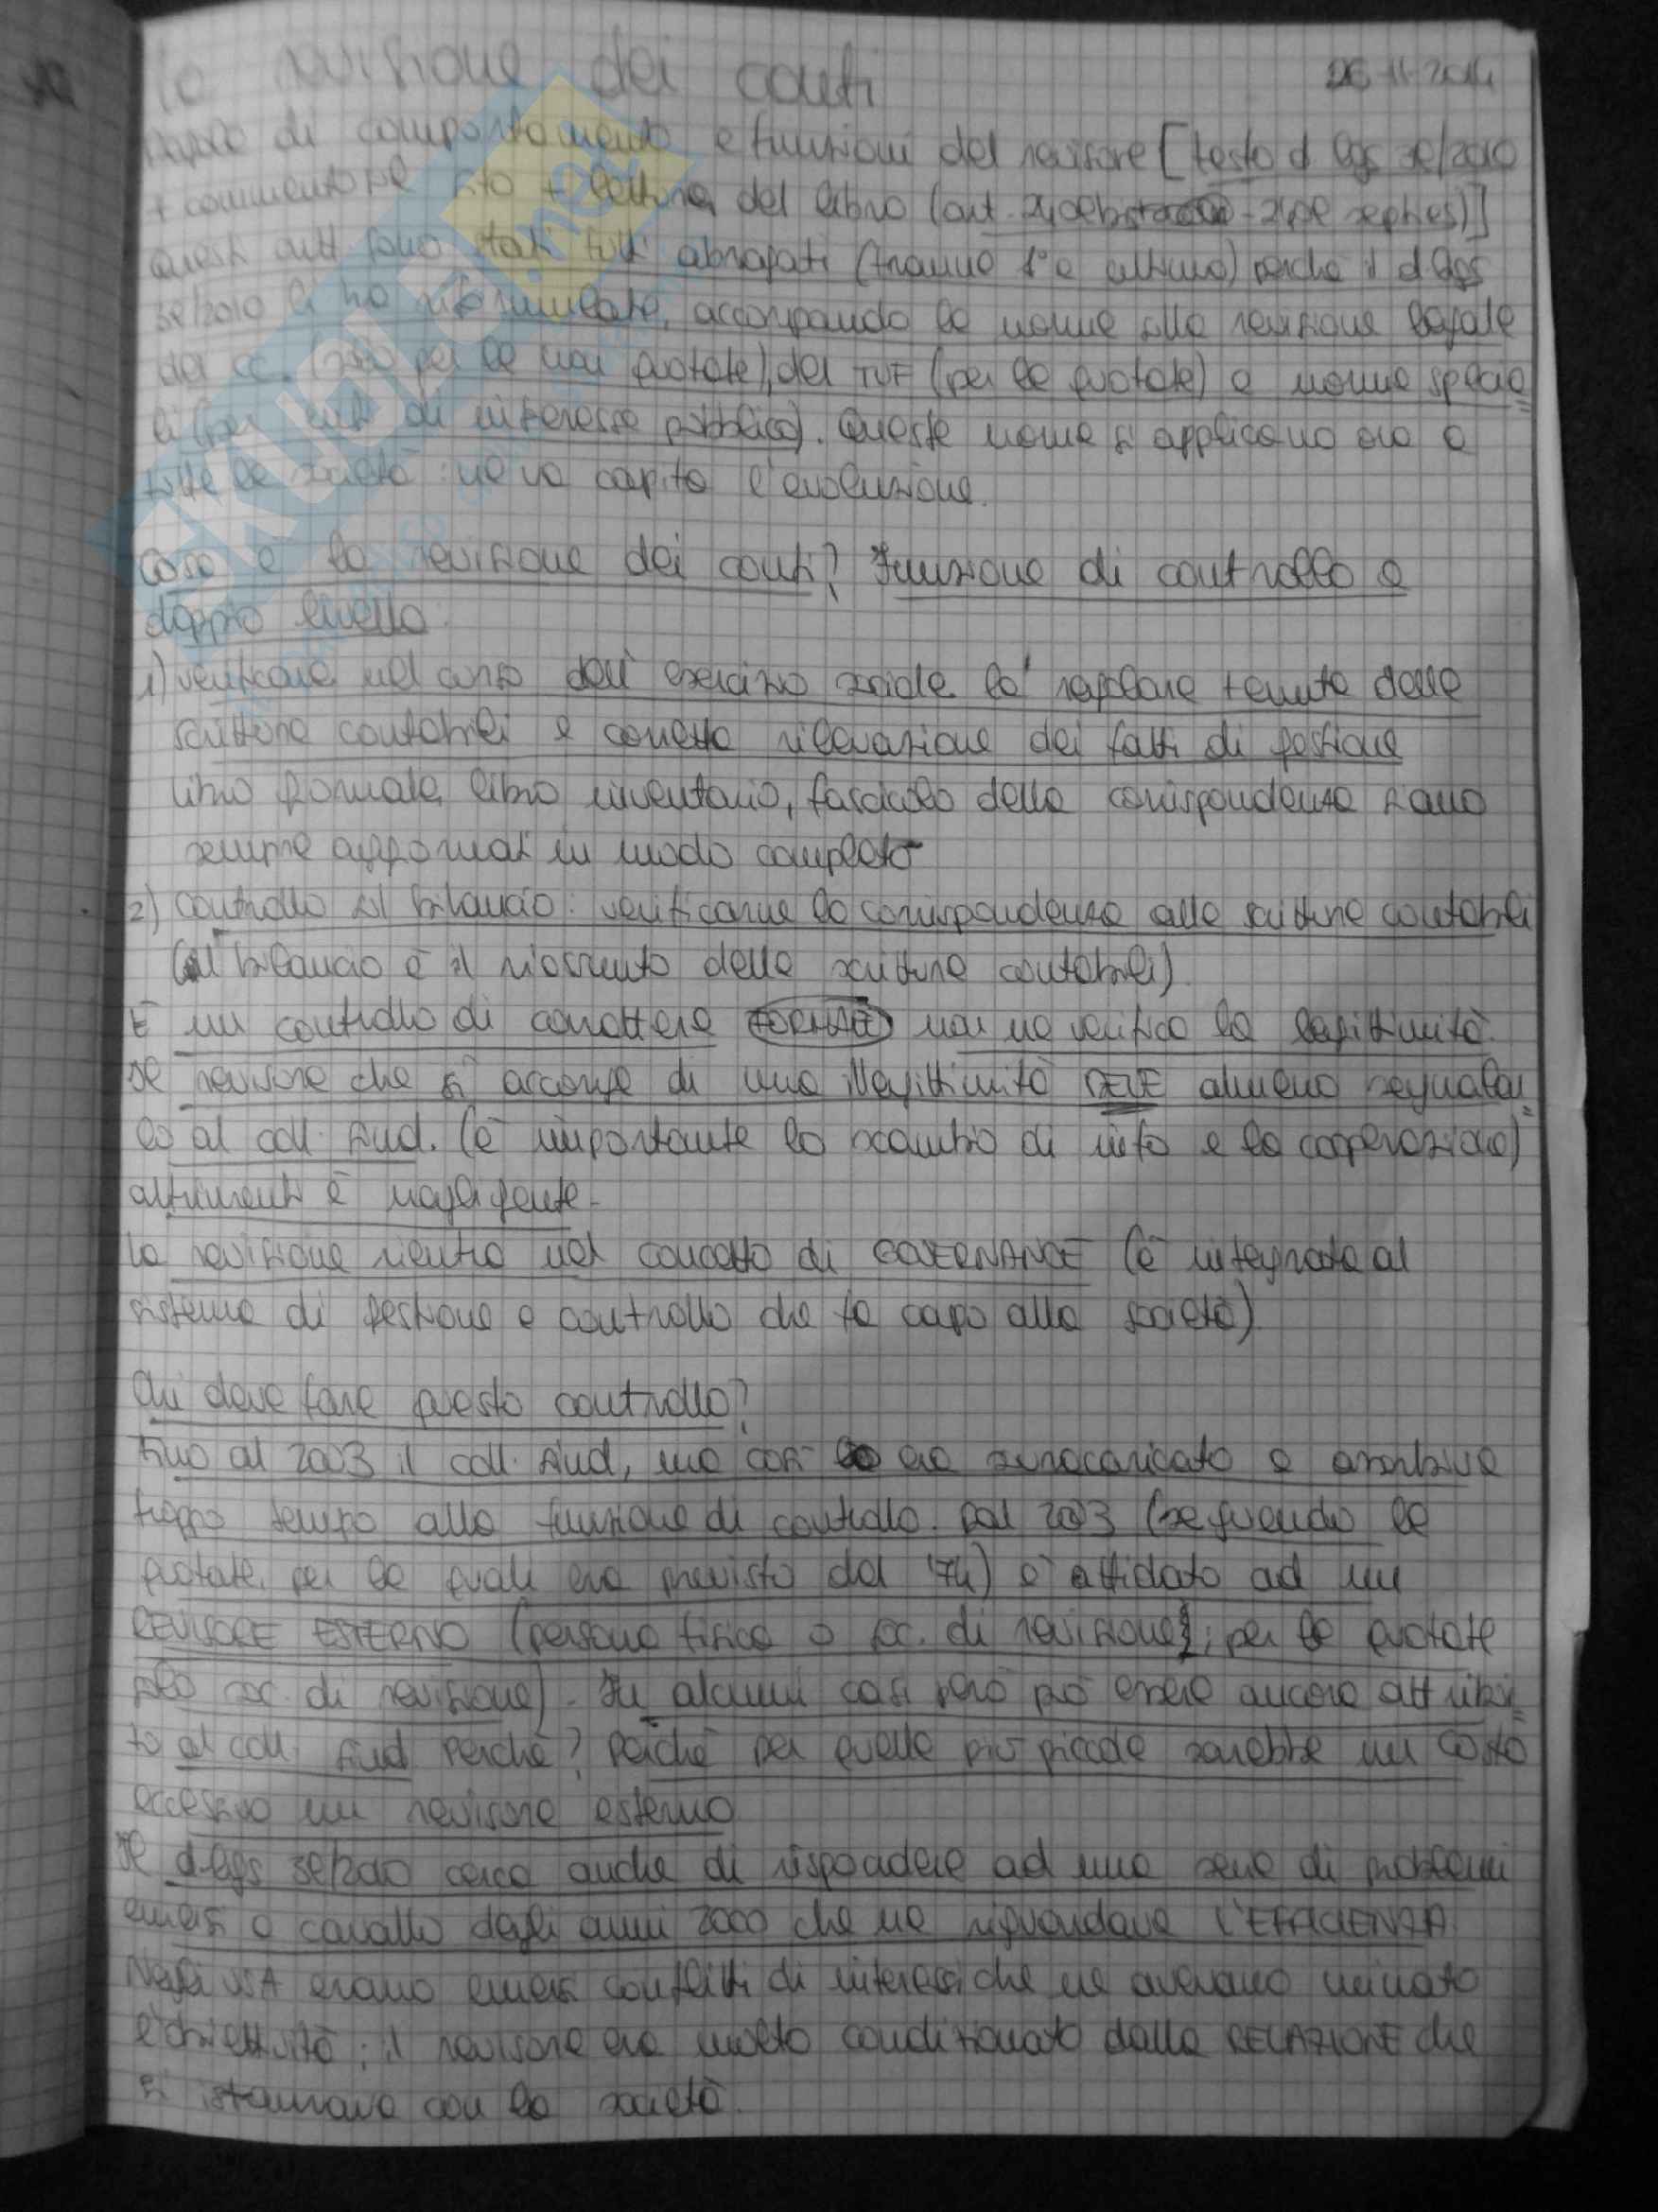 La revisione dei conti 26-11-2014
di comportamento e funzioni del revisore [testo d. lgs 39/2010
+ commento sul sito + lettura del libro (art. 2409bis - 2409 septies)]
questi artt sono stati tutti abrogati (tranne 1° e ultimo) perché il d lgs
39/2010 li ha riformulati, accorpando le norme sulla revisione legale
del cc. (solo per le non quotate), del TUF (per le quotate) e norme specia=
li (per enti di interesse pubblico). Queste norme si applicano ora a
tutte le società: ne va capita l'evoluzione.
Cosa è la revisione dei conti? Funzione di controllo a
doppio livello:
1) verificare nel corso dell'esercizio sociale la regolare tenuta delle
scritture contabili e corretta rilevazione dei fatti di gestione
libro giornale, libro inventario, fascicolo della corrispondenza siano
sempre aggiornati in modo completo
2) controllo sul bilancio: verificarne la corrispondenza alle scritture contabili
(il bilancio è il riassunto delle scritture contabili).
È un controllo di carattere FORMALE non ne verifica la legittimità.
Il revisore che si accorge di una illegittimità DEVE almeno segnalar=
lo al coll. sind. (è importante lo scambio di info e la cooperazione)
altrimenti è negligente.
La revisione rientra nel concetto di GOVERNANCE (è integrata al
sistema di gestione e controllo che fa capo alla società).
Chi deve fare questo controllo?
Fino al 2003 il coll. sind, ma così era sovracaricato e assorbiva
troppo tempo alla funzione di controllo. Dal 2003 (seguendo le
quotate, per le quali era previsto dal '74) è affidato ad un
REVISORE ESTERNO (persona fisica o soc. di revisione; per le quotate
solo soc. di revisione). In alcuni casi però può essere ancora attribui=
to al coll. sind. Perché? Perché per quelle più piccole sarebbe un costo
eccessivo un revisore esterno
Il d.lgs 39/2010 cerca anche di rispondere ad una serie di problemi
emersi a cavallo degli anni 2000 che ne riguardava L'EFFICIENZA.
Negli USA erano emersi conflitti di interessi che ne avevano minato
l'obiettività; il revisore era molto condizionato dalla RELAZIONE che
si istaurava con la società.
SKUOLA.net